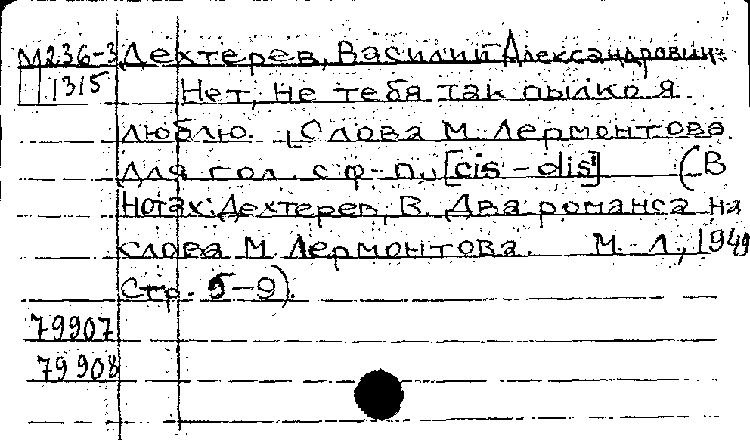 М236-3 Дехтерев, Василий Александрович
1315 Нет, не тебя так пылко я
люблю. [Слова М. Лермонтова.
Для гол. с ф-п., [cis - dis²] (В
нотах: Дехтерев, В. Два романса на
слова М. Лермонтова. М.-Л., 1949
Стр. 5-9).
79907
79908